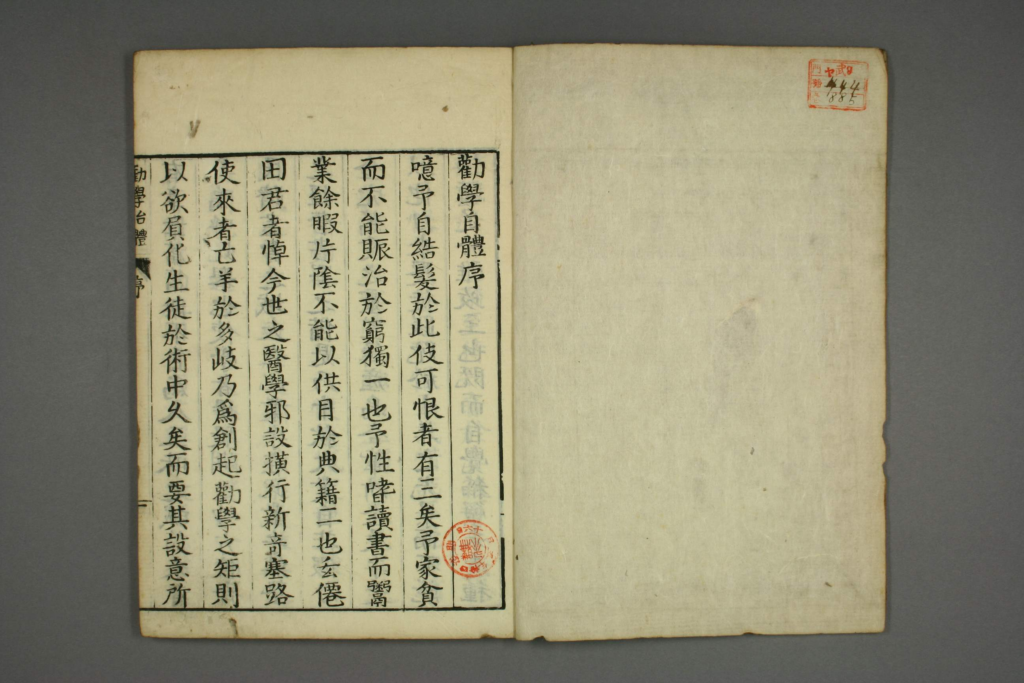 勸學自體序
噫予自結髮於此伎可恨者有三矣予家貧
而不能賑治於窮獨一也予性嗜讀書而鬻
業餘暇片陰不能以供目於典籍二也玄僊
田君者悼今世之醫學邪說橫行新奇塞路
使來者亡羊於多岐乃爲創起勸學之矩則
以欲屓化生徒於術中久矣而要其設意所
勸學治體
序